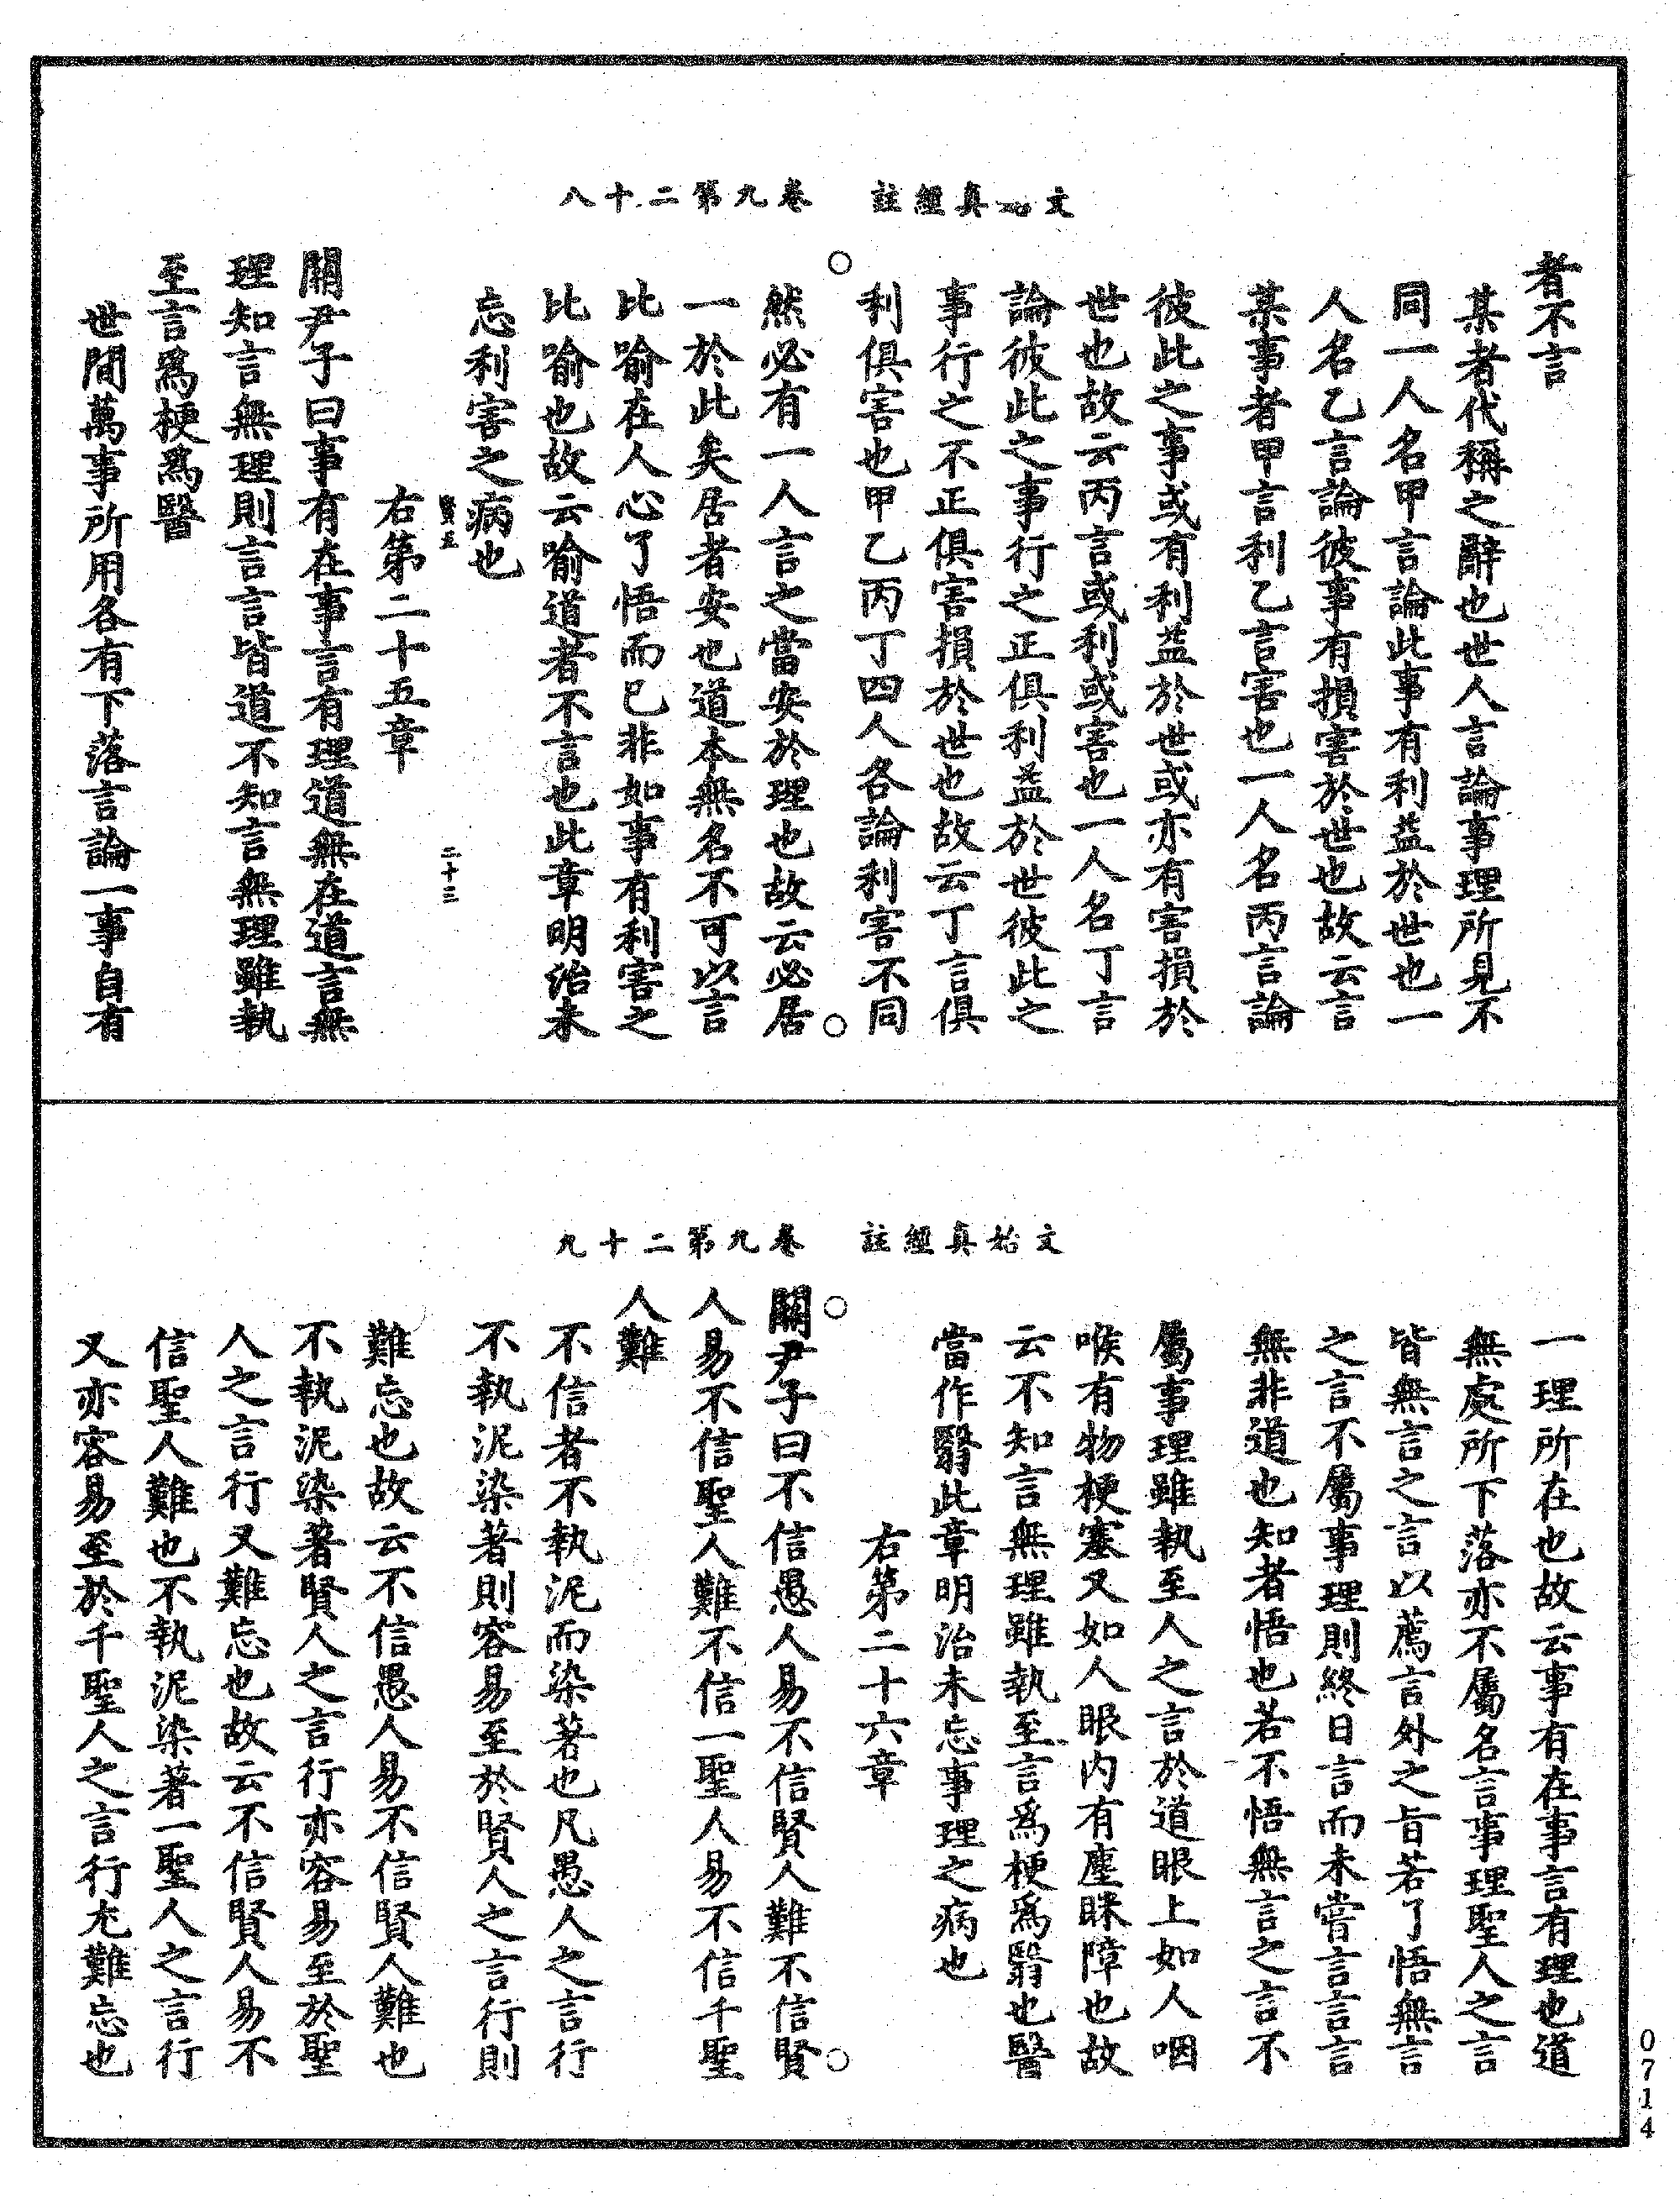 文始真經註　卷九第二十八
者不言
某者代稱之辭也世人言論事理所見不
同一人名甲言論此事有利益於世也一
人名乙言論彼事有損害於世也故云言
某事者甲言利乙言害也一人名丙言論
彼此之事或有利益於世或亦有害損於
世也故云丙言或利或害也一人名丁言
論彼此之事行之正俱利益於世彼此之
事行之不正俱害損於世也故云丁言俱
利俱害也甲乙丙丁四人各論利害不同
然必有一人言之當安於理也故云必居
一於此矣居者安也道本無名不可以言
比喻在人心了悟而已非如事有利害之
比喻也故云喻道者不言也此章明治未
忘利害之病也
賢五　二十三
右第二十五章
關尹子曰事有在事言有理道無在道言無
理知言無理則言言皆道不知言無理雖執
至言爲梗爲醫
世間萬事所用各有下落言論一事自有
文始真經註　卷九第二十九
一理所在也故云事有在事言有理也道
無處所下落亦不屬名言事理聖人之言
皆無言之言以薦言外之旨若了悟無言
之言不屬事理則終日言而未嘗言言言
無非道也知者悟也若不悟無言之言不
屬事理雖執至人之言於道眼上如人咽
喉有物梗塞又如人眼內有塵眯障也故
云不知言無理雖執至言爲梗爲翳也醫
當作翳此章明治未忘事理之病也
右第二十六章
關尹子曰不信愚人易不信賢人難不信賢
人易不信聖人難不信一聖人易不信千聖
人難
不信者不執泥而染著也凡愚人之言行
不執泥染著則容易至於賢人之言行則
難忘也故云不信愚人易不信賢人難也
不執泥染著賢人之言行亦容易至於聖
人之言行又難忘也故云不信賢人易不
信聖人難也不執泥染著一聖人之言行
又亦容易至於千聖人之言行尤難忘也
0714